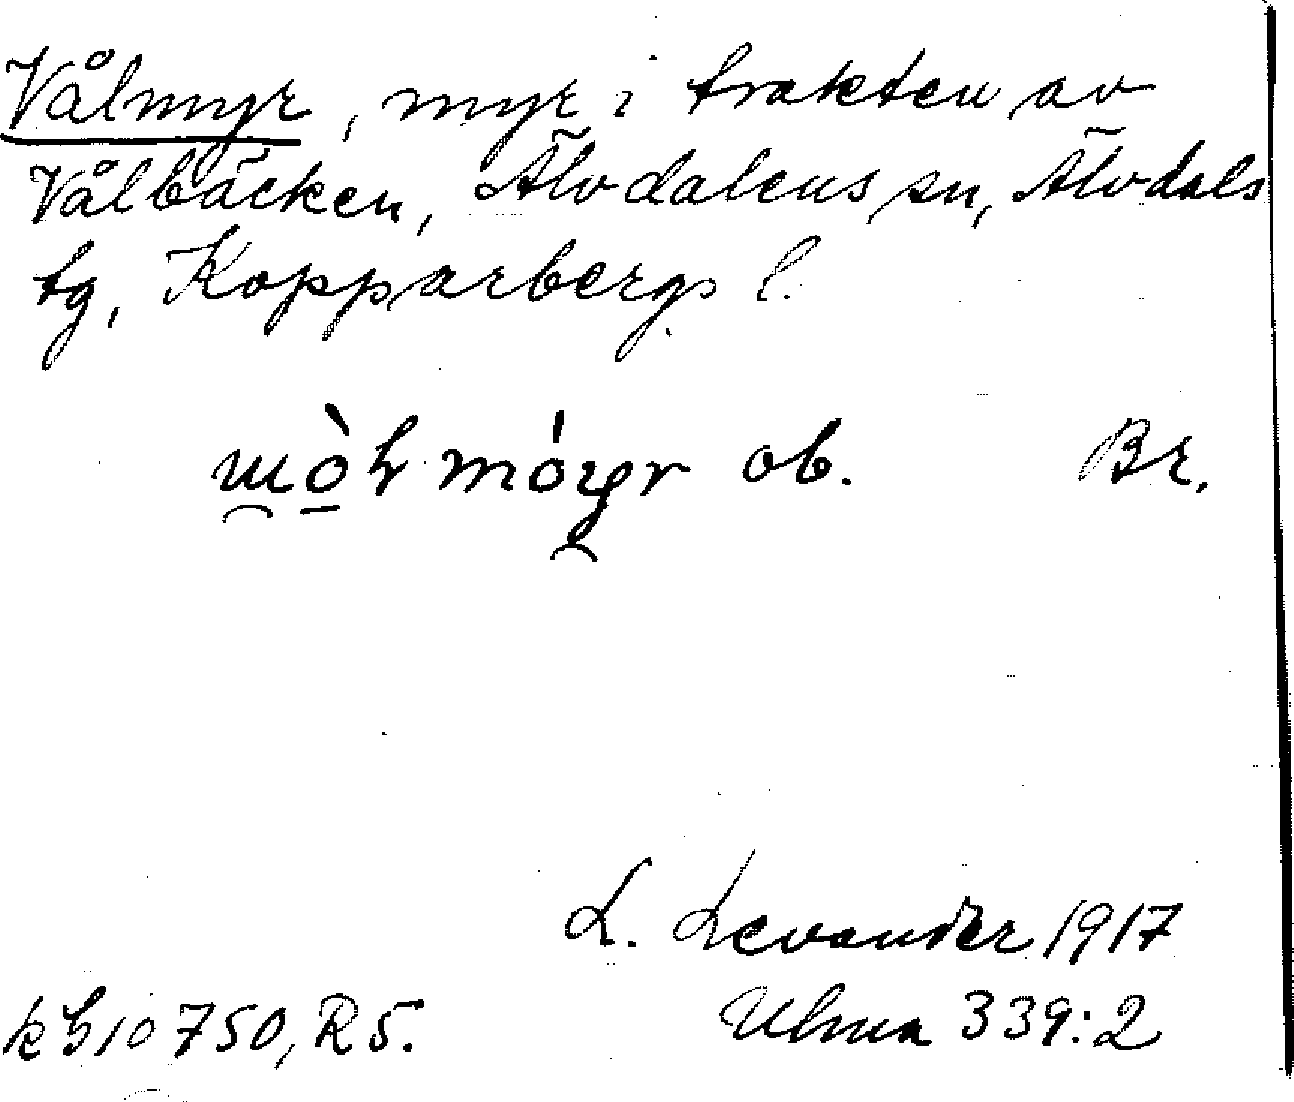 Vålmyr, myr i trakten av
Vålbäcken, Älvdalens sn, Älvdals
tg, Kopparbergs l.
ob. Br.
L. Levander 1917
kb 10750, R5. Ulma 339:2